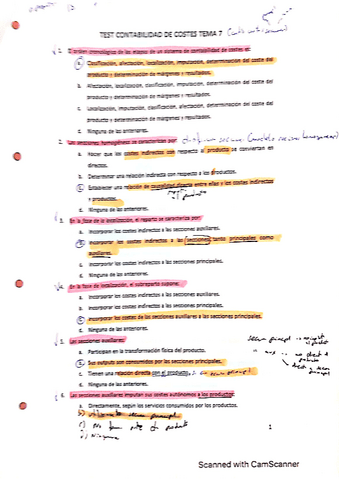 TEST CONTABILIDAD DE COSTES TEMA 7
1. El orden cronológico de las etapas de un sistema de contabilidad de costes es:
a. Clasificación, afectación, localización, imputación, determinación del coste del
producto y determinación de márgenes y resultados.
b. Afectación, clasificación, localización, imputación, determinación del coste del
producto y determinación de márgenes y resultados.
c. Localización, imputación, clasificación, afectación, determinación del coste del
producto y determinación de márgenes y resultados.
d. Ninguna de las anteriores.
2. Las secciones homogéneas se caracterizan por:
a. Hacer que los costes indirectos con respecto al producto se conviertan en
directos.
b. Determinar una relación indirecta con respecto a los productos.
c. Establecer una relación de causalidad directa entre ellas y los costes indirectos
y productos.
d. Ninguna de las anteriores.
3. En la fase de localización, el reparto se caracteriza por:
a. Incorporar los costes indirectos a las secciones auxiliares.
b. Incorporar los costes indirectos a las secciones tanto principales como
auxiliares.
c. Incorporar los costes indirectos a las secciones principales.
d. Ninguna de las anteriores.
4. En la fase de localización, el subreparto supone:
a. Incorporar los costes indirectos a las secciones auxiliares.
b. Incorporar los costes indirectos a las secciones principales.
c. Incorporar los costes de las secciones auxiliares a las secciones principales.
d. Ninguna de las anteriores.
5. Las secciones auxiliares:
a. Participan en la transformación física del producto.
b. Sus outputs son consumidos por las secciones principales.
c. Tienen una relación directa con el producto.
d. Ninguna de las anteriores.
6. Las secciones auxiliares imputan sus costes autónomos a los productos:
a. Directamente, según los servicios consumidos por los productos.
d) Ninguna
1
Scanned with CamScanner